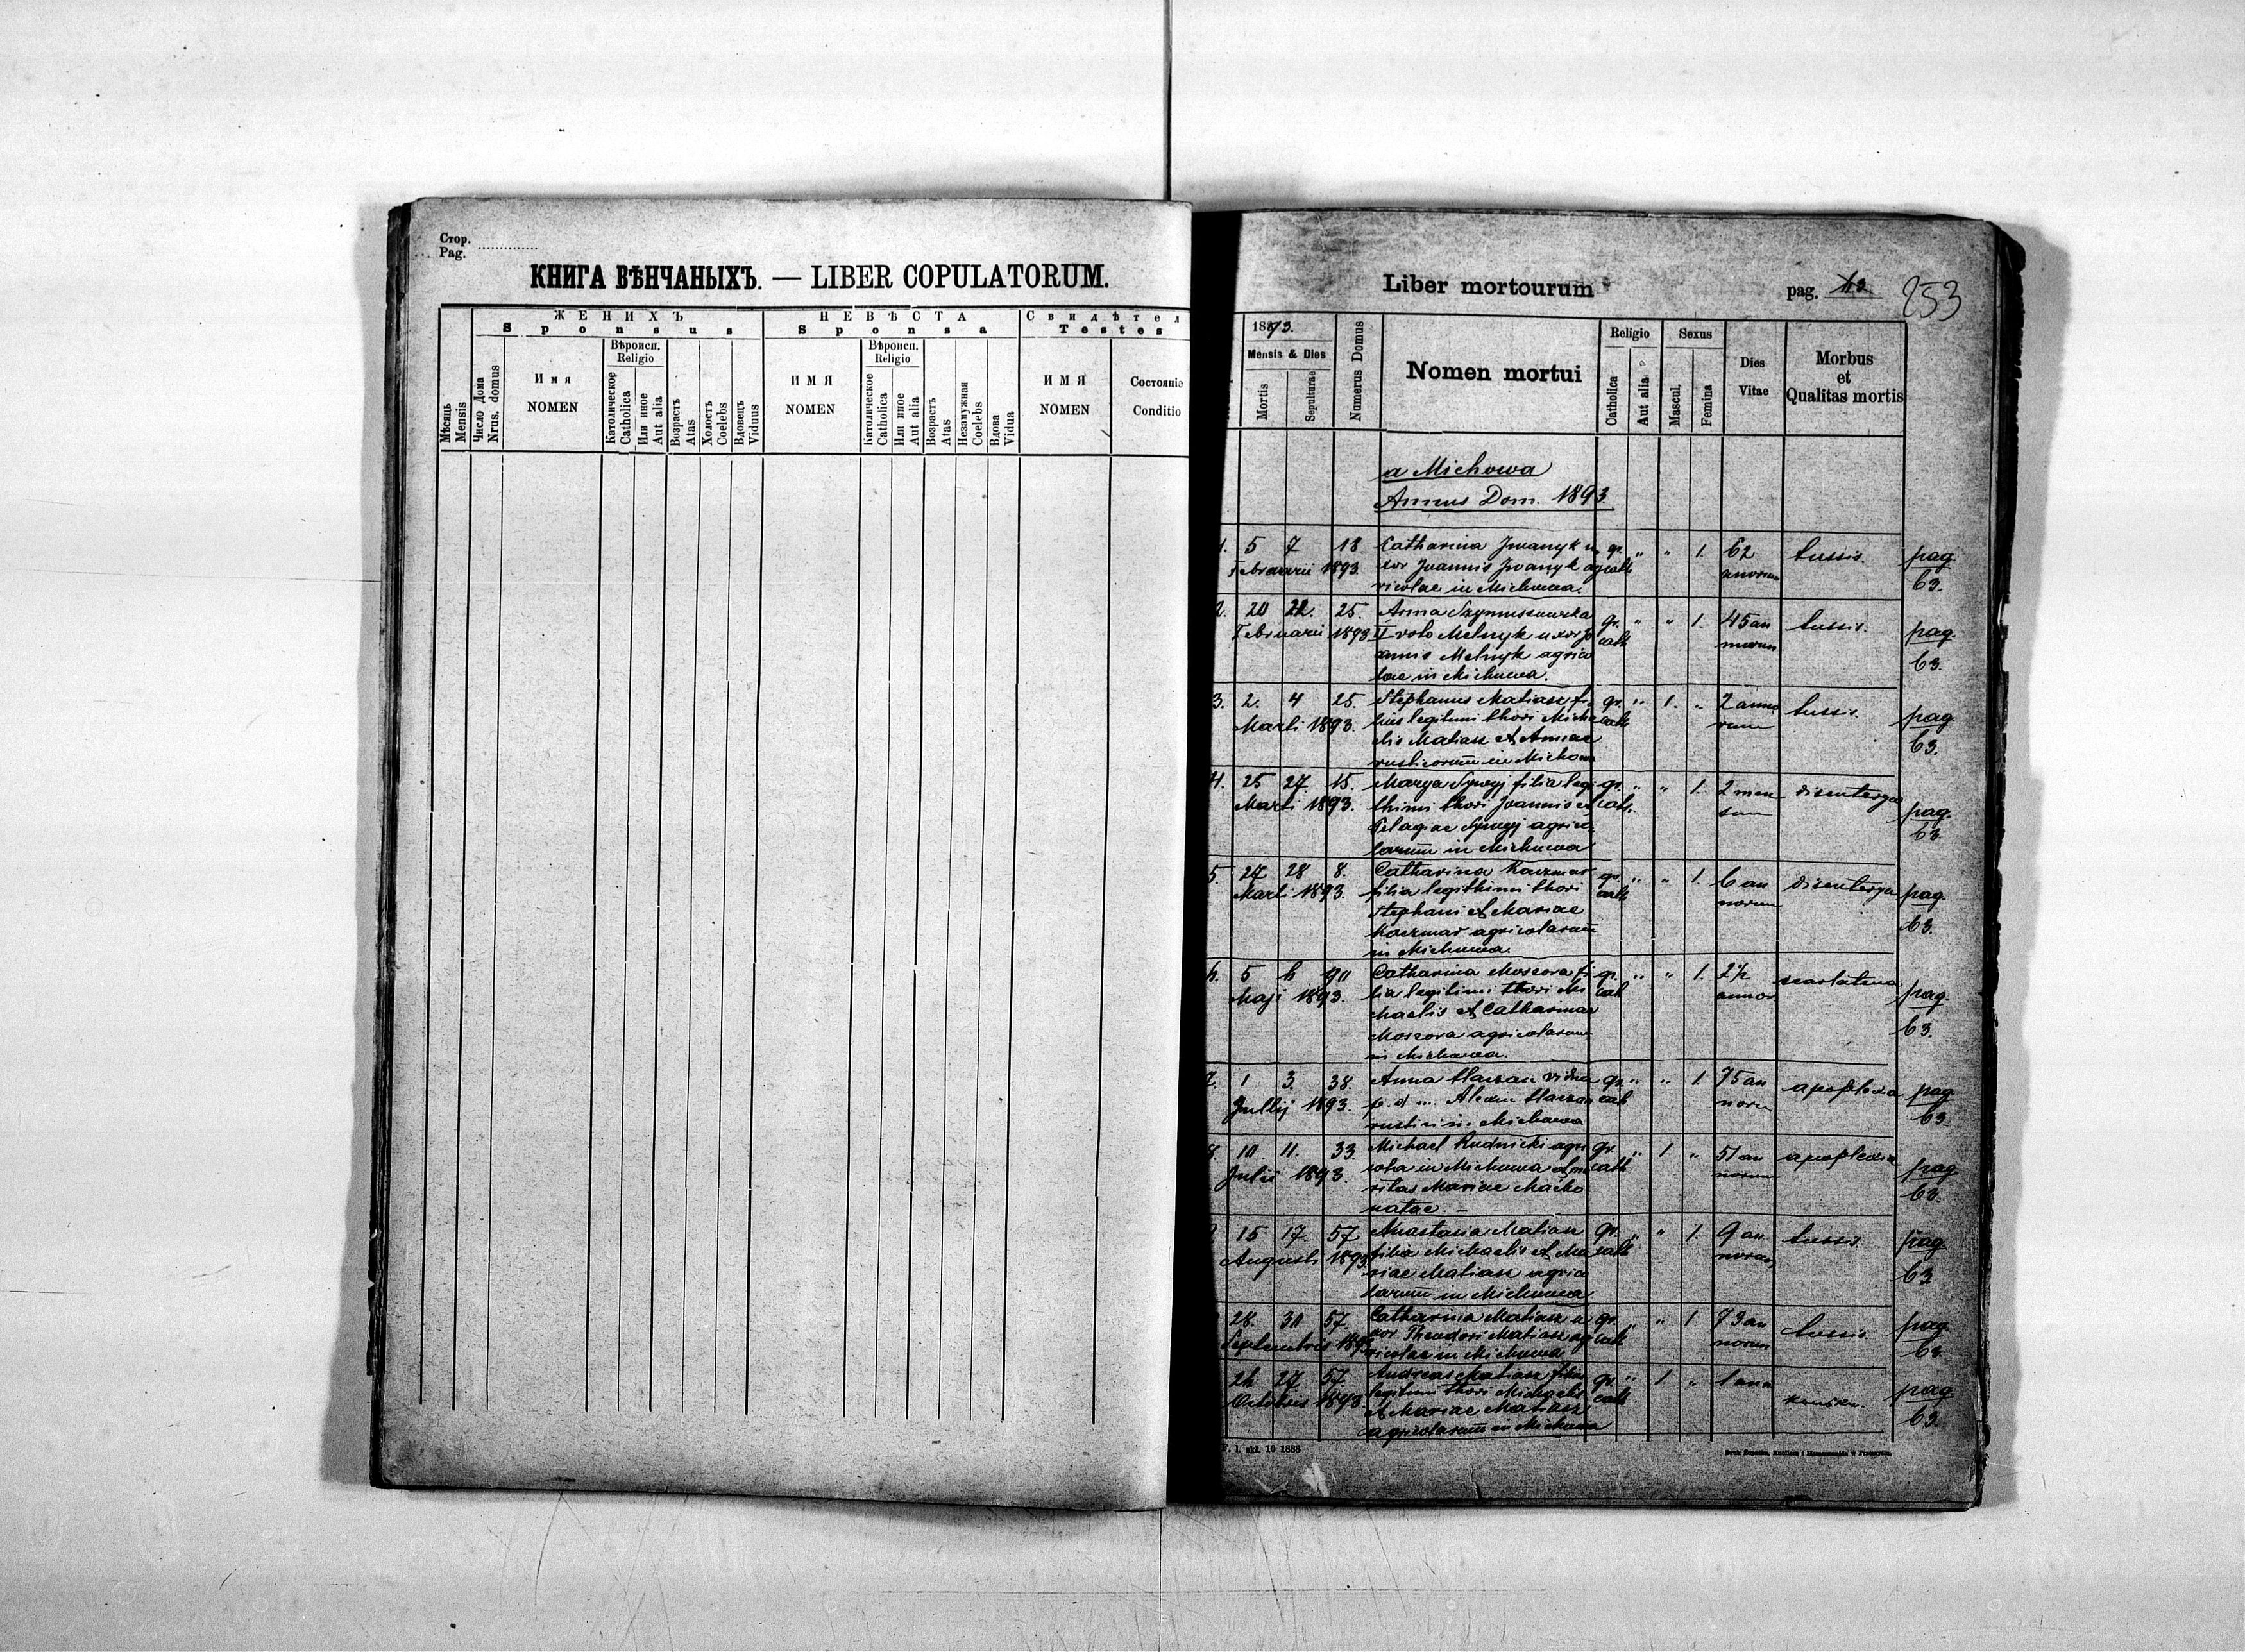 Стор.
Pag.
КНИГА ВѢНЧАНЫХЪ. — LIBER COPULATORUM.
ЖЕНИХЪ
Sponsus
НЕВѢСТА
Sponsa
Свидѣтел
Testes
Мѣсяць
Mensis
Число Дома
Nrus. domus
Имя
NOMEN
Вѣроисп.
Religio
Католическое
Catholica
Или иное
Aut alia
Возрастъ
Atas
Холостъ
Coelebs
Вдовецъ
Viduus
ИМЯ
NOMEN
Вѣроисп.
Religio
Католическое
Catholica
Или иное
Aut alia
Возрастъ
Atas
Незамужная
Coelebs
Вдова
Vidua
ИМЯ
NOMEN
Состояніе
Conditio
Liber mortourum
pag.
253
1893.
Mensis & Dies
Mortis
Sepulturae
Numerus Domus
Nomen mortui
Religio
Catholica
Aut alia
Sexus
Mascul.
Femina
Dies
Vitae
Morbus
et
Qualitas mortis
a Michowa
Annus Dom. 1893.
1. 5 7 18 Catharina Iwanyk u gr. " " 1. 62 tussis. pag.
Februarii 1893. xor Joannis Iwanyk ag cath annorum 63.
ricolae in Michowa.
2. 20 22. 25. Anna gr. " " 1. 45 an tussis. pag.
Februarii 1893. II voto Melnyk uxor Jo cath norum 63.
annis Melnyk agrico
lae in Michowa.
3. 2. 4 25. Stephanus Matiasz fi gr. " 1. " 2 anno tussis. pag.
Marti 1893. lius legitimi thori Micha cath rum 63.
elis Matiasz et Annae
rusticorum in Michowa
4. 25 27. 15. Marya filia legi gr. " " 1. 2 men disenterya pag.
Marti 1893. thimi thori Joannis et cath. sum 63.
Pelagiae agrico
larum in Michowa
5. 27 28 8. Catharina Kaczmar gr. " " 1. 6 an disenterya pag.
Marti 1893. filia legithimi thori cath norum 63.
Stephani et Mariae
Kaczmar agricolarum
in Michowa.
6. 5 6 Catharina Moscora fi gr. " " 1. 2½ scarlatena pag.
Maji 1893. lia legitimi thori Mi cath annor. 63.
chaelis et Catharinae
Moscora agricolarum
in Michowa.
7. 1 3. 38. Anna vidua gr. " " 1 75 an apoplexia pag.
Jullij 1893. p. d Alexii cath noru 63.
rustici in Michowa
8. 10 11. 33. Michael Rudnicki agri gr. " 1 " 51 an apoplexia pag.
Julii 1893. cola in Michowa et ma cath norum 63.
ritus Mariae Maćko
natae. –
15 17. 57 Anastasia Matiasz gr. " " 1. 9 an tussis. pag.
Augusti 1893. filia Michaelis et Ma cath norum 63
riae Matiasz agrico
larum in Michowa
28. 30 57. Catharina Matiasz u gr. " " 1 73 an tussis. pag.
Septembris 1893 xor Theodori Matiasz ag cath norum 63.
ricolae in Michowa
26 27 57. Andreas Matiasz filius gr. " 1 " 1 pag.
Octobris 1893. legitimi thori Michaelis cath 63.
et Mariae Matiasz
agricolarum in Michowa
F. 1. skł. 10 1888